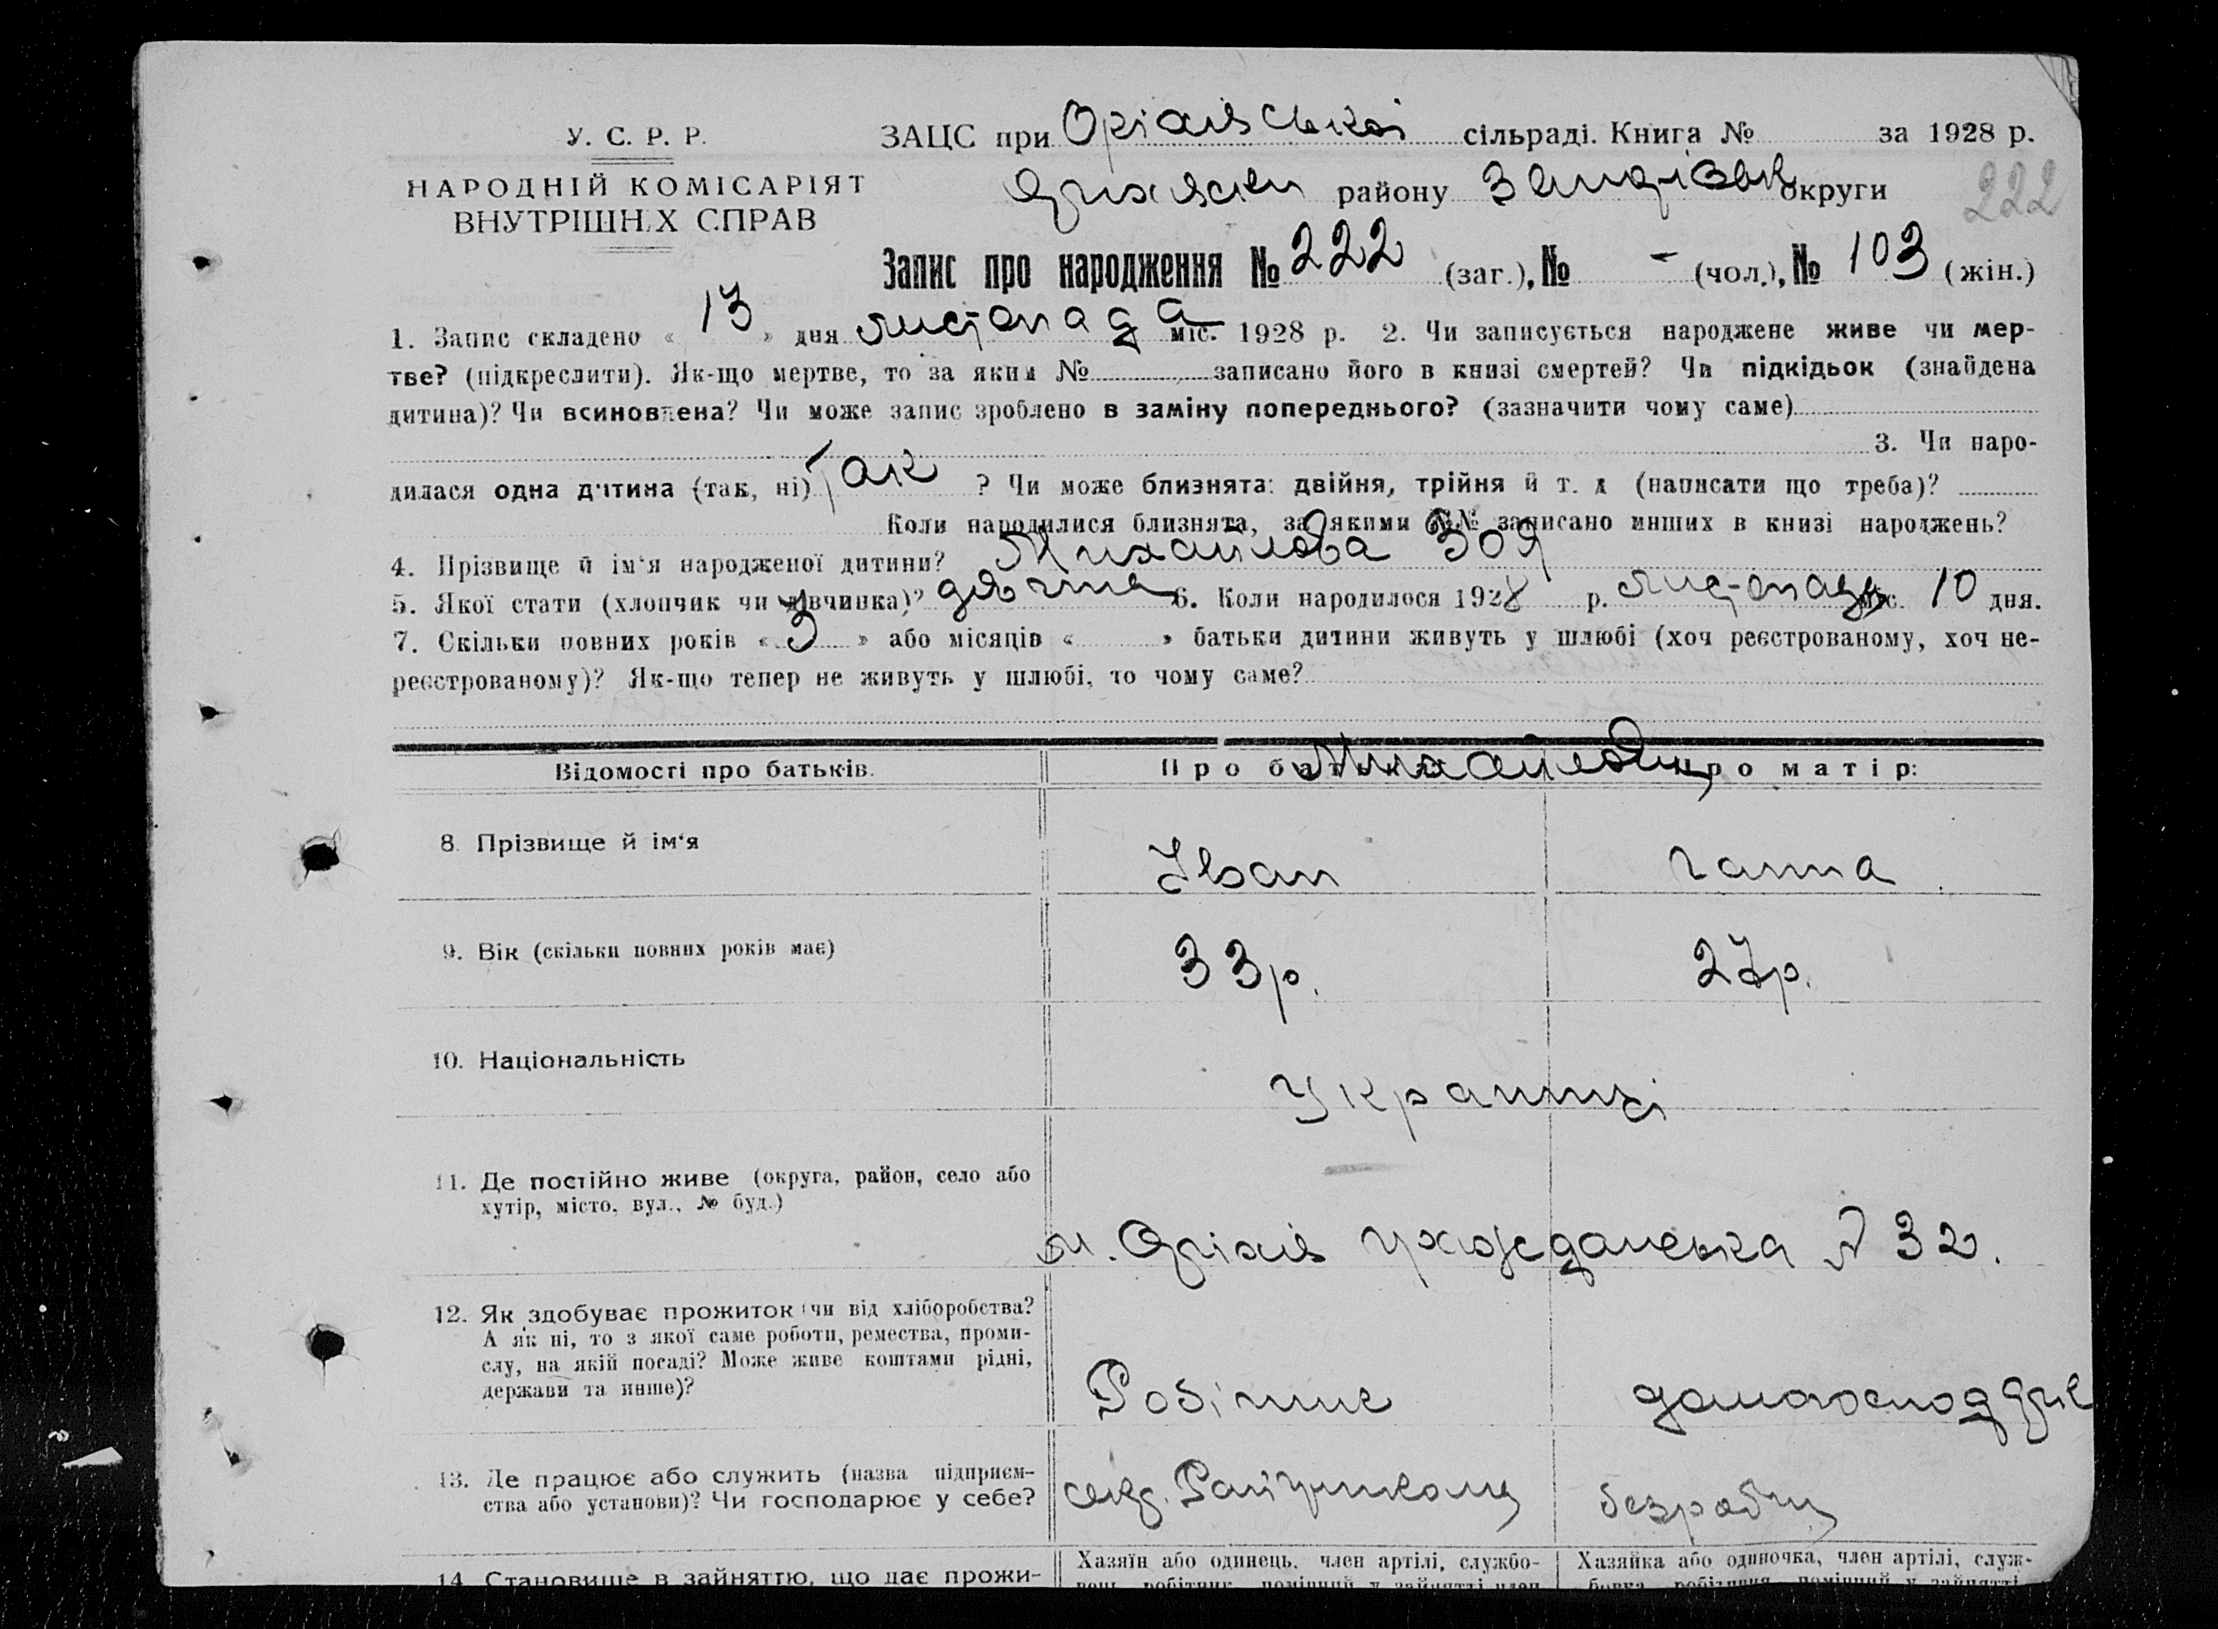 У. С. Р. Р.
НАРОДНІЙ КОМІСАРІЯТ
ВНУТРІШН.Х СПРАВ
ЗАЦС при Оріхівській сільраді. Книга № за 1928 р.
району Запоріськ округи
222
Запис про народження № 222 (заг.), № - (чол.), № 103 (жін.)
1. Запис складено « 13 » дня листопада міс. 1928 р. 2. Чи записується народжене живе чи мер-
тве? (підкреслити). Як-що мертве, то за яким № записано його в книзі смертей? Чи підкідьок (знайдена
дитина)? Чи всиновлена? Чи може запис зроблено в заміну попереднього? (зазначити чому саме)
3. Чи наро-
дилася одна дитина (так, ні) Так ? Чи може близнята: двійня, трійня й т. д (написати що треба)?
Коли народилися близнята, за якими №№ записано инших в книзі народжень?
4. Прізвище й ім'я народженої дитини? Михайлова Зоя
5. Якої стати (хлопчик чи дівчинка)? дівчина 6. Коли народилося 1928 р. листопада міс. 10 дня.
7. Скільки повних років « 3 » або місяців « » батьки дитини живуть у шлюбі (хоч реєстрованому, хоч не-
реєстрованому)? Як-що тепер не живуть у шлюбі, то чому саме?
Відомості про батьків. Про батька Про матір:
Михайлови
8. Прізвище й ім'я Іван Ганна
9. Вік (скільки повних років має) 33 р. 27 р.
10. Національність Українці
11. Де постійно живе (округа, район, село або
хутір, місто, вул., № буд.)
м. Оріхів № 32.
12. Як здобуває прожиток (чи від хліборобства?
А як ні, то з якої саме роботи, ремества, проми-
слу, на якій посаді? Може живе коштами рідні,
держави та инше)?
Робітник
13. Де працює або служить (назва підприєм-
ства або установи)? Чи господарює у себе?
безробітн
Хазяїн або одинець, член артілі, службо- Хазяйка або одиночка, член артілі, служ-
14. Становище в зайняттю, що дає прожи-